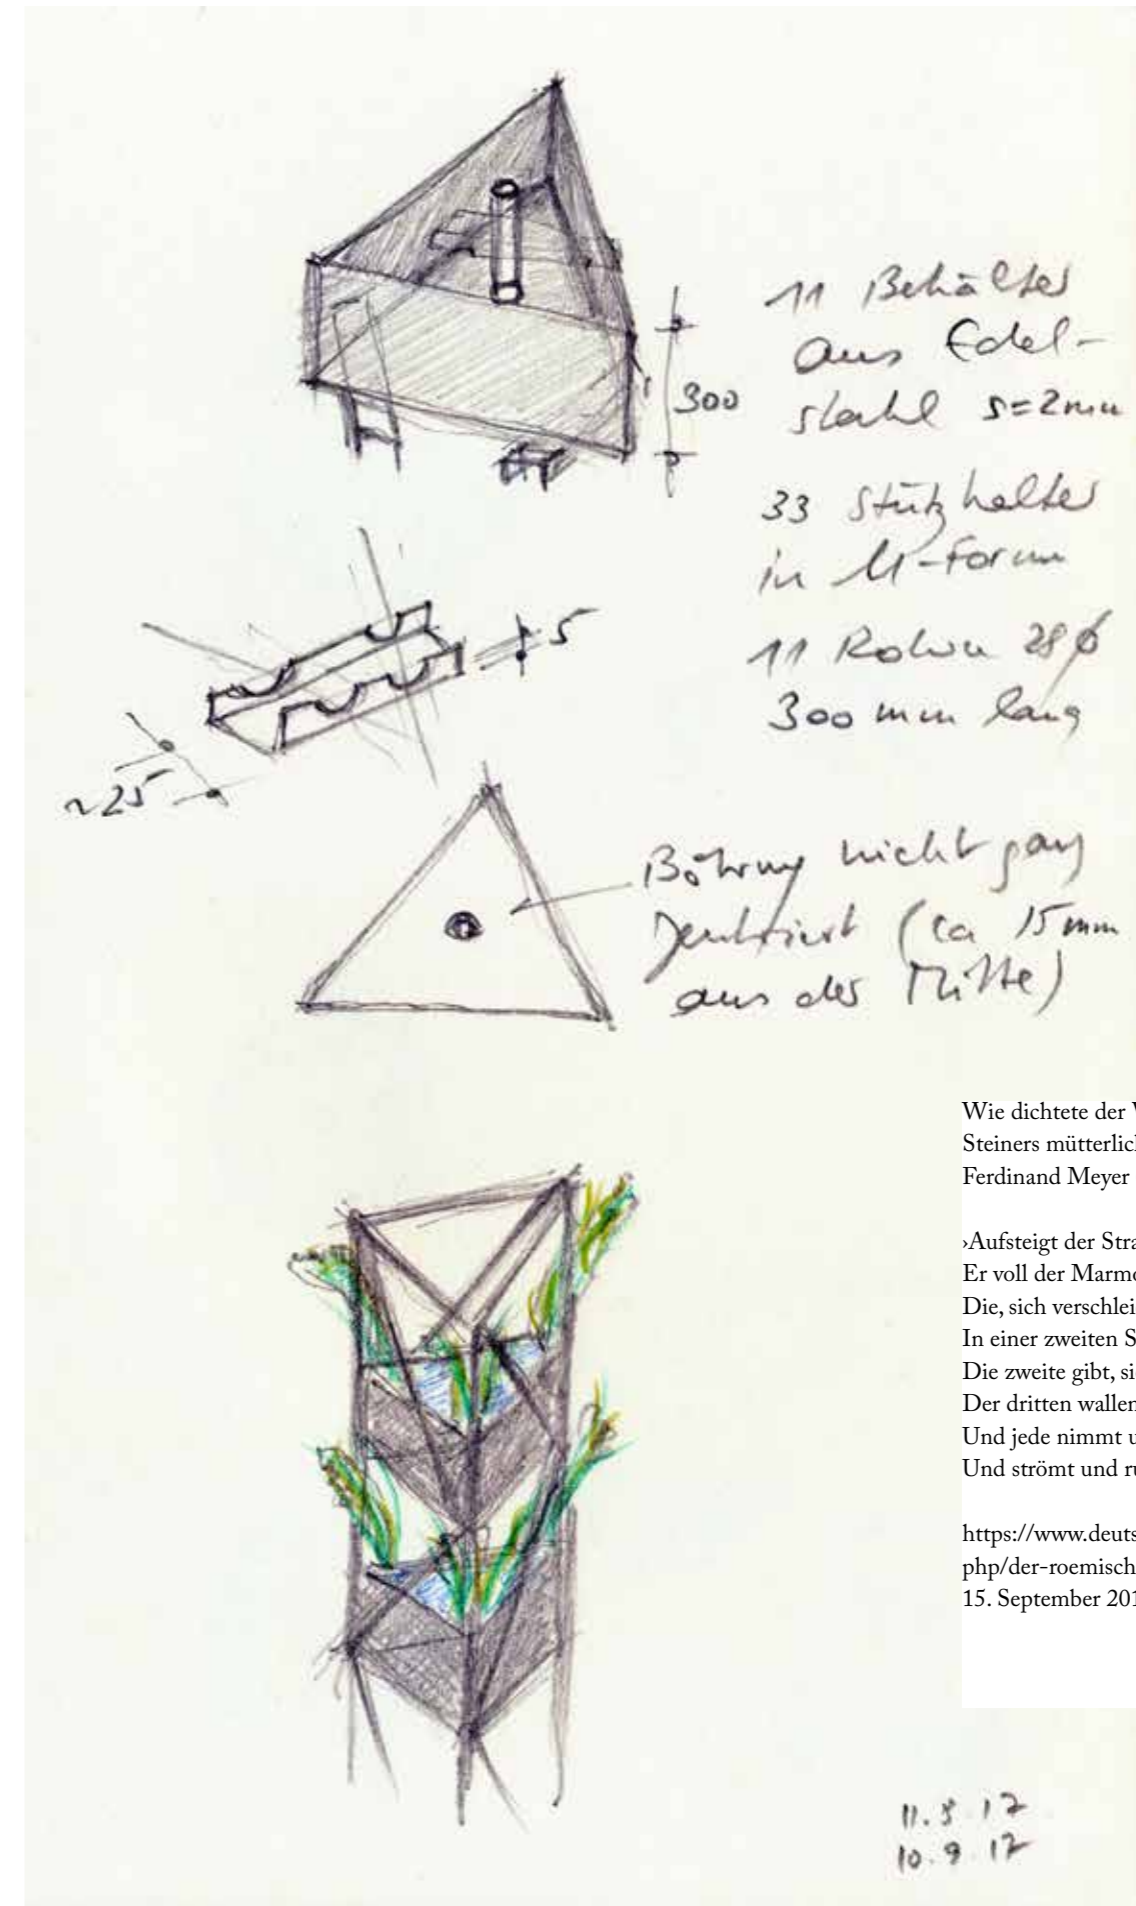 11 Behälter
aus Edel-
stahl s=2mm
300
33 Stützhalter
in U-Form
5
11 Rohre 28 ø
300 mm lang
~25
Bohrung nicht ganz
zentriert (ca 15mm
aus der Mitte)
Wie dichtete der
Steiners mütterlich
Ferdinand Meyer
›Aufsteigt der Stra
Er voll der Marmo
Die, sich verschlei
In einer zweiten S
Die zweite gibt, si
Der dritten wallen
Und jede nimmt u
Und strömt und ru
https://www.deuts
php/der-roemisch
15. September 201
10.9.17